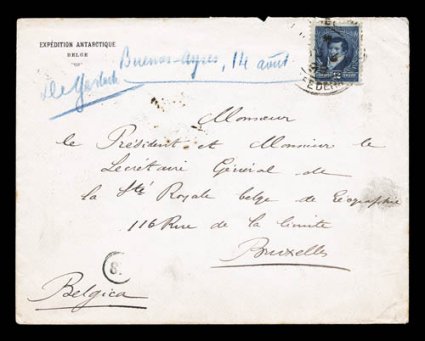 EXPÉDITION ANTARCTIQUE
BELGE
Buenos-Ayres, 14 août
de Gerlache
12
Monsieur
le Président et Monsieur le
Secrétaire Général de
la Sté Royale belge de Géographie
116 Rue de la limite
Bruxelles
8.
Belgica